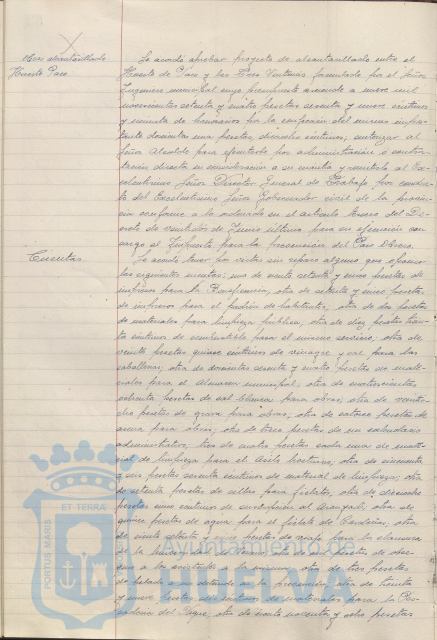 Obras alcantarillado
Huerto Paco.
Se acordó aprobar proyecto de alcantarillado entre el
Huerto de Paco y las Tres Ventanas formulado por el Señor
Ingeniero municipal cuyo presupuesto asciende a nueve mil
novecientas setenta y cuatro pesetas sesenta y nueve céntimos
y minuta de honorarios por la confección del mismo importante
doscientas una pesetas, céntimos; autorizar al
Señor Alcalde para ejecutarlo por administración o contra-
tación directa en consideración a su cuantía y remitirlo al Ex-
celentísimo Señor Director General de Trabajo por conduc-
to del Excelentísimo Señor Gobernador civil de la provin-
cia conforme a lo ordenado en el artículo del De-
creto de veintidós de Junio último para su ejecución con
cargo al para la prevención del Paro Obrero.
Cuentas
Se acordó tener por vistas sin reparo alguno que oponer
las siguientes cuentas: una de veinte setenta y cinco pesetas de
impresos para la Beneficencia, otra de setenta y cinco pesetas
de impresos para el padrón de habitantes, otra de dos pesetas
de materiales para limpieza pública, otra de diez pesetas trein-
ta céntimos de combustible para el mismo servicio, otra de
veinte pesetas quince céntimos de vinagre y sal para las
caballerías, otra de doscientas sesenta y cuatro pesetas de mate-
riales para el Almacén municipal, otra de cuatrocientas
ochenta pesetas de cal blanca para obras, otra de
pesetas de grava para obras, otra de catorce pesetas de
arena para obras, otra de trece pesetas de un calendario
administrativo, tres de cuatro pesetas cada una de mate-
rial de limpieza para el Asilo, otra de cincuenta
y seis pesetas sesenta céntimos de material de limpieza, otra
de setenta pesetas de sellos para fielatos, otra de dieciocho
pesetas cinco céntimos de, otra de
quince pesetas de agua para el fielato de, otra
de pesetas de para la clausura
de la, pesetas de
a la, otra de tres pesetas
de helado a un detenido en la prevención, otra de treinta
y nueve pesetas céntimos de materiales para la
del Parque, otra de noventa y ocho pesetas
PORTUS MARIS
ET TERRA
CUSTODIA
Ayuntamiento de
HUELVA